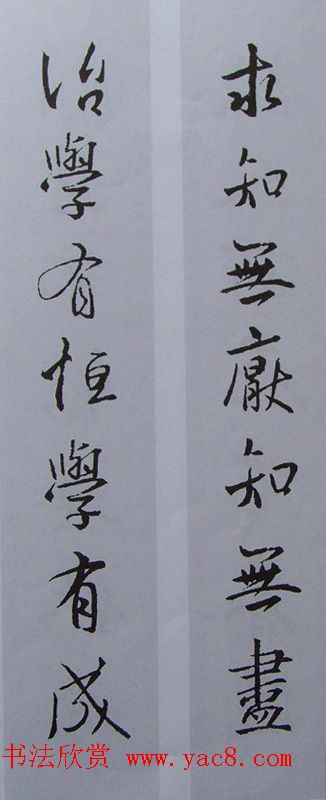 求知無厭知無盡
治學有恒學有成
书法欣赏 www.yac8.com